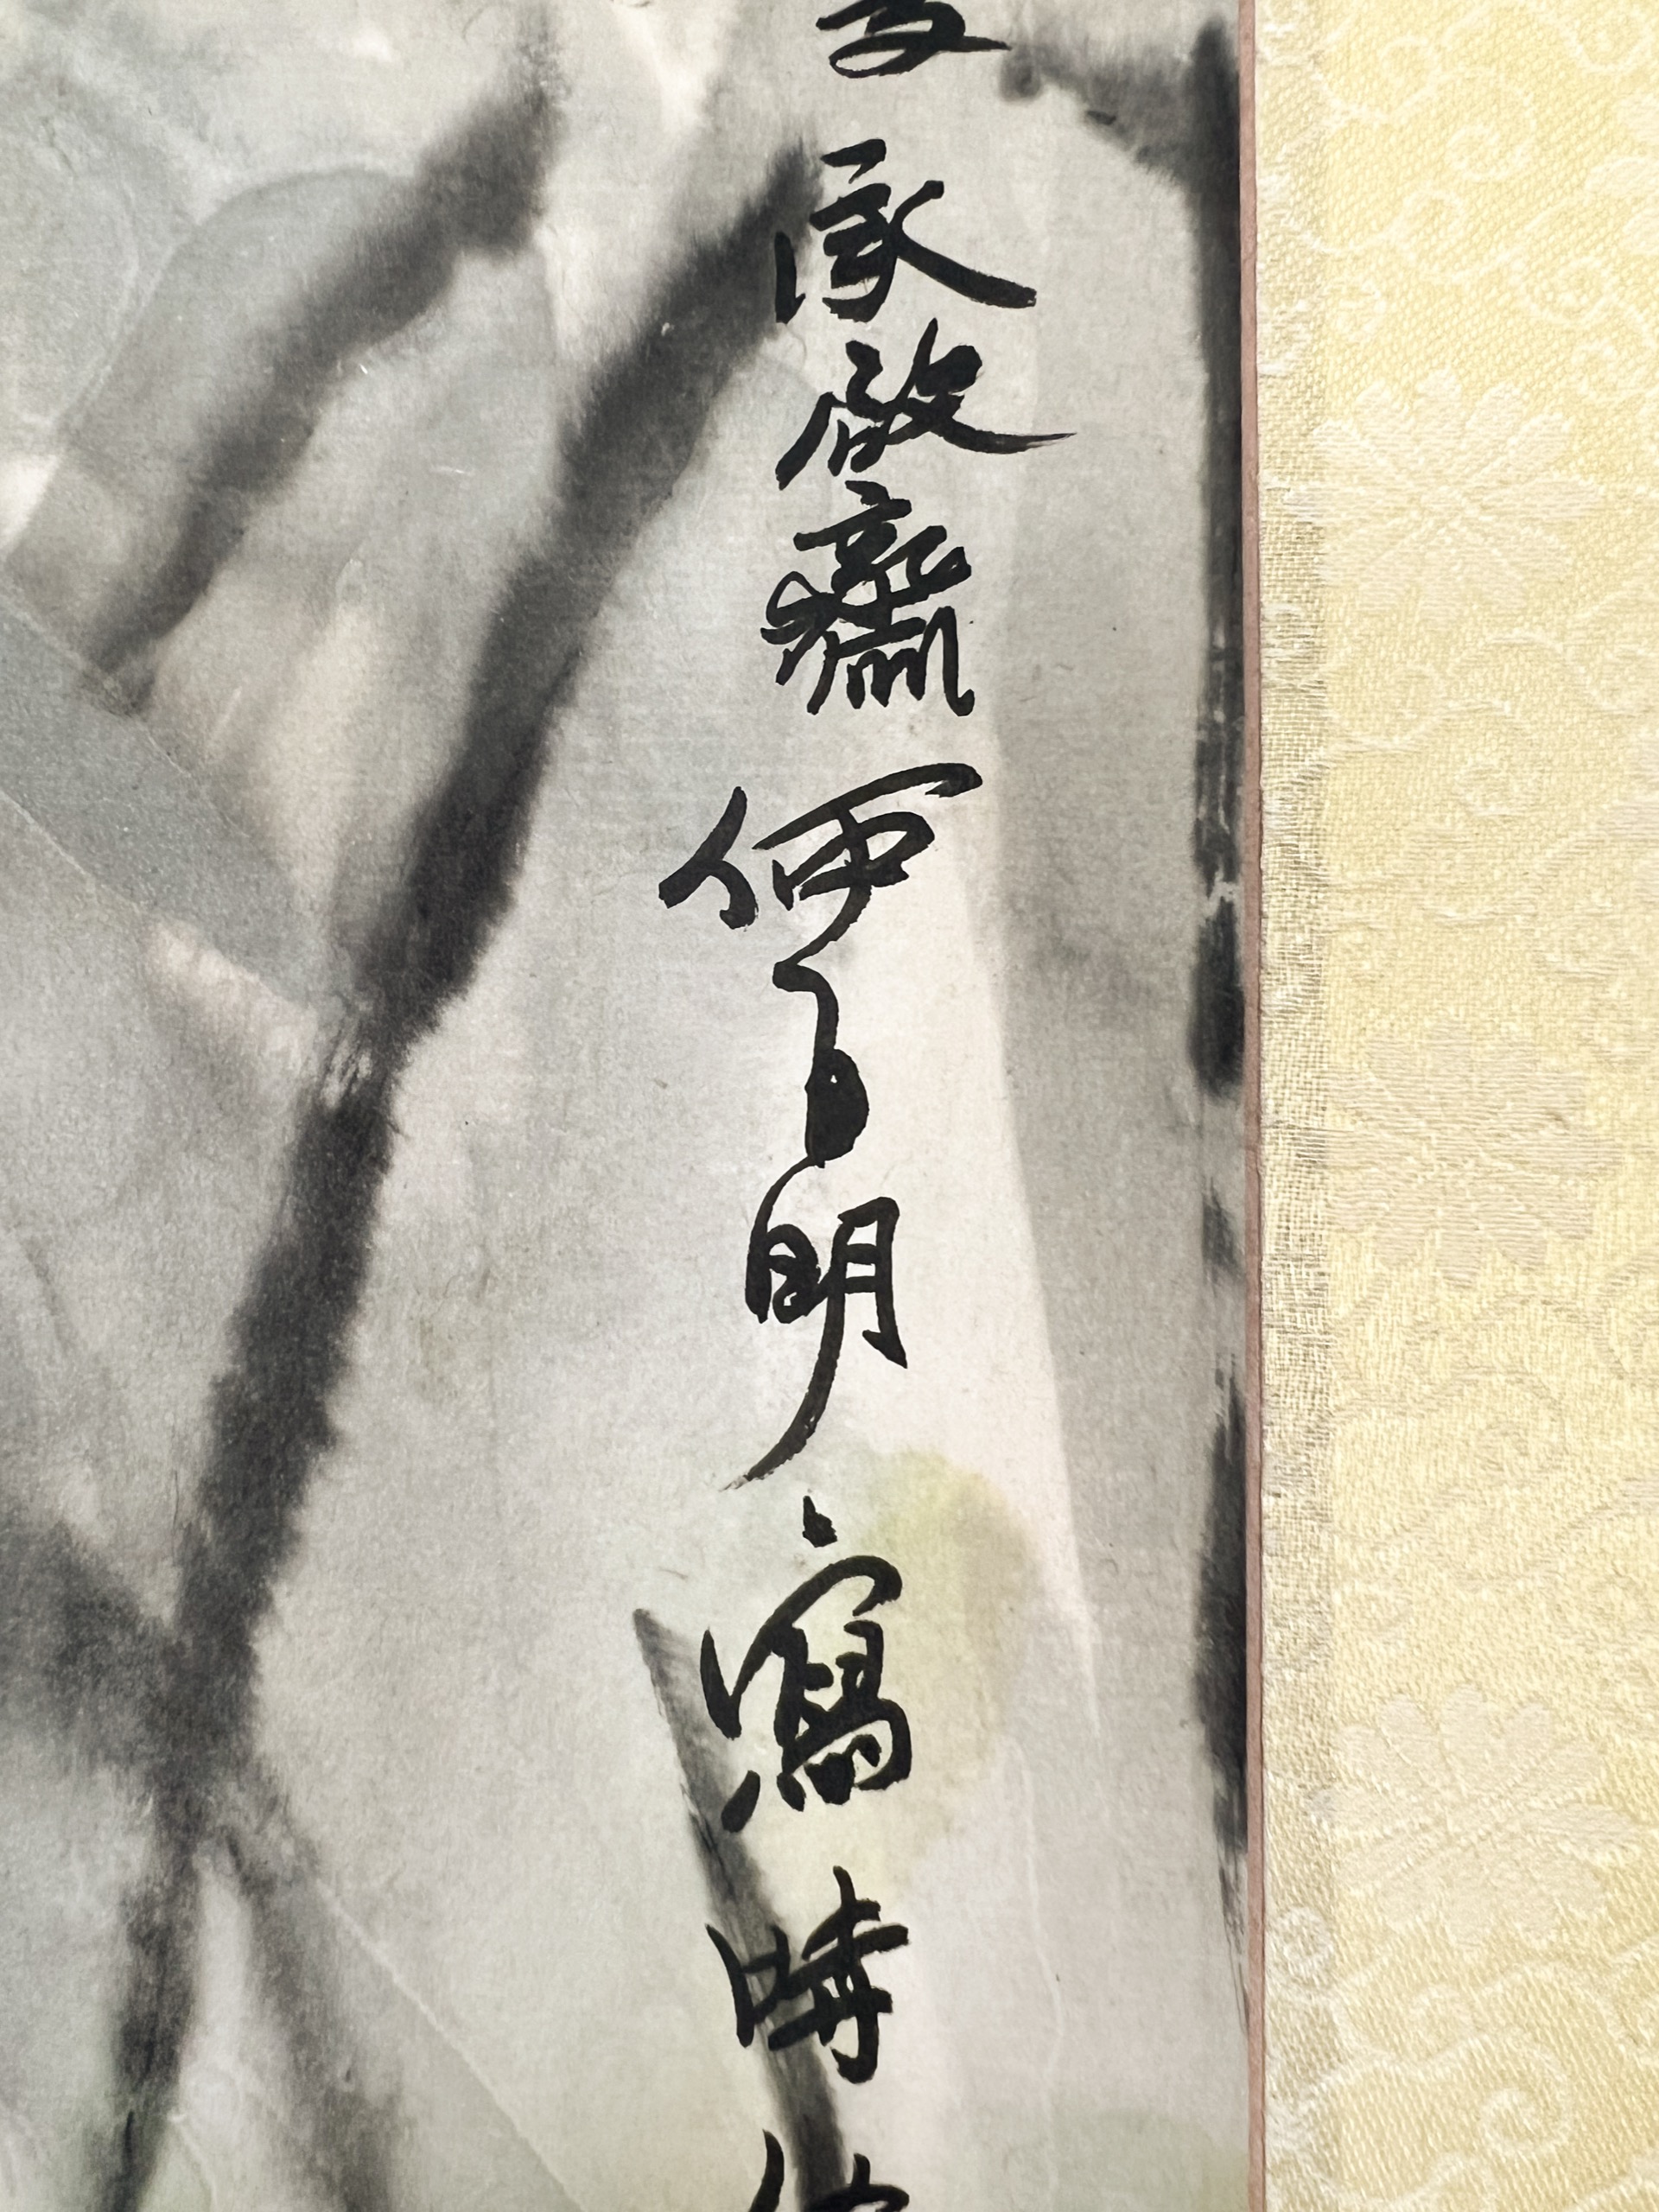 承啟齋何百明寫時